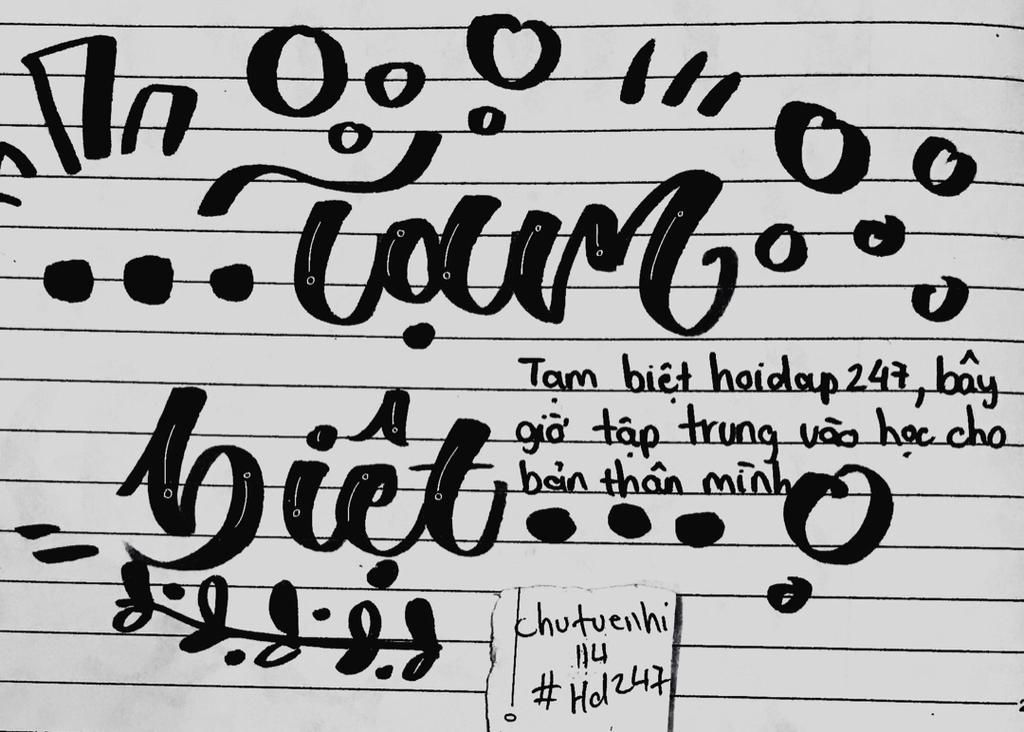 Tạm
biệt
Tạm biệt hoidap247, bây
giờ tập trung vào học cho
bản thân mình
chutuenhi
114
#Hd247